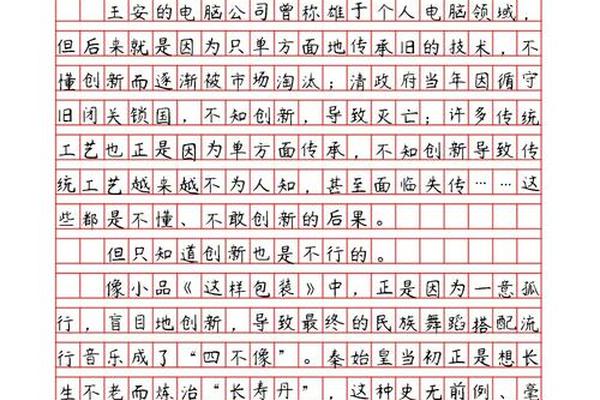 王安的电脑公司曾称雄于个人电脑领域，
但后来就是因为只单方面地传承旧的技术，不
懂创新而逐渐被市场淘汰；清政府当年因循守
旧闭关锁国，不知创新，导致灭亡；许多传统
工艺也正是因为单方面传承，不知创新导致传
统工艺越来越不为人知，甚至面临失传……这
些都是不懂、不敢创新的后果。
但只知道创新也是不行的。
像小品《这样包装》中，正是因为一意孤
行，盲目地创新，导致最终的民族舞蹈搭配流
行音乐成了“四不像”。秦始皇当初正是想长
生不老而炼治“长寿丹”，这种史无前例、毫